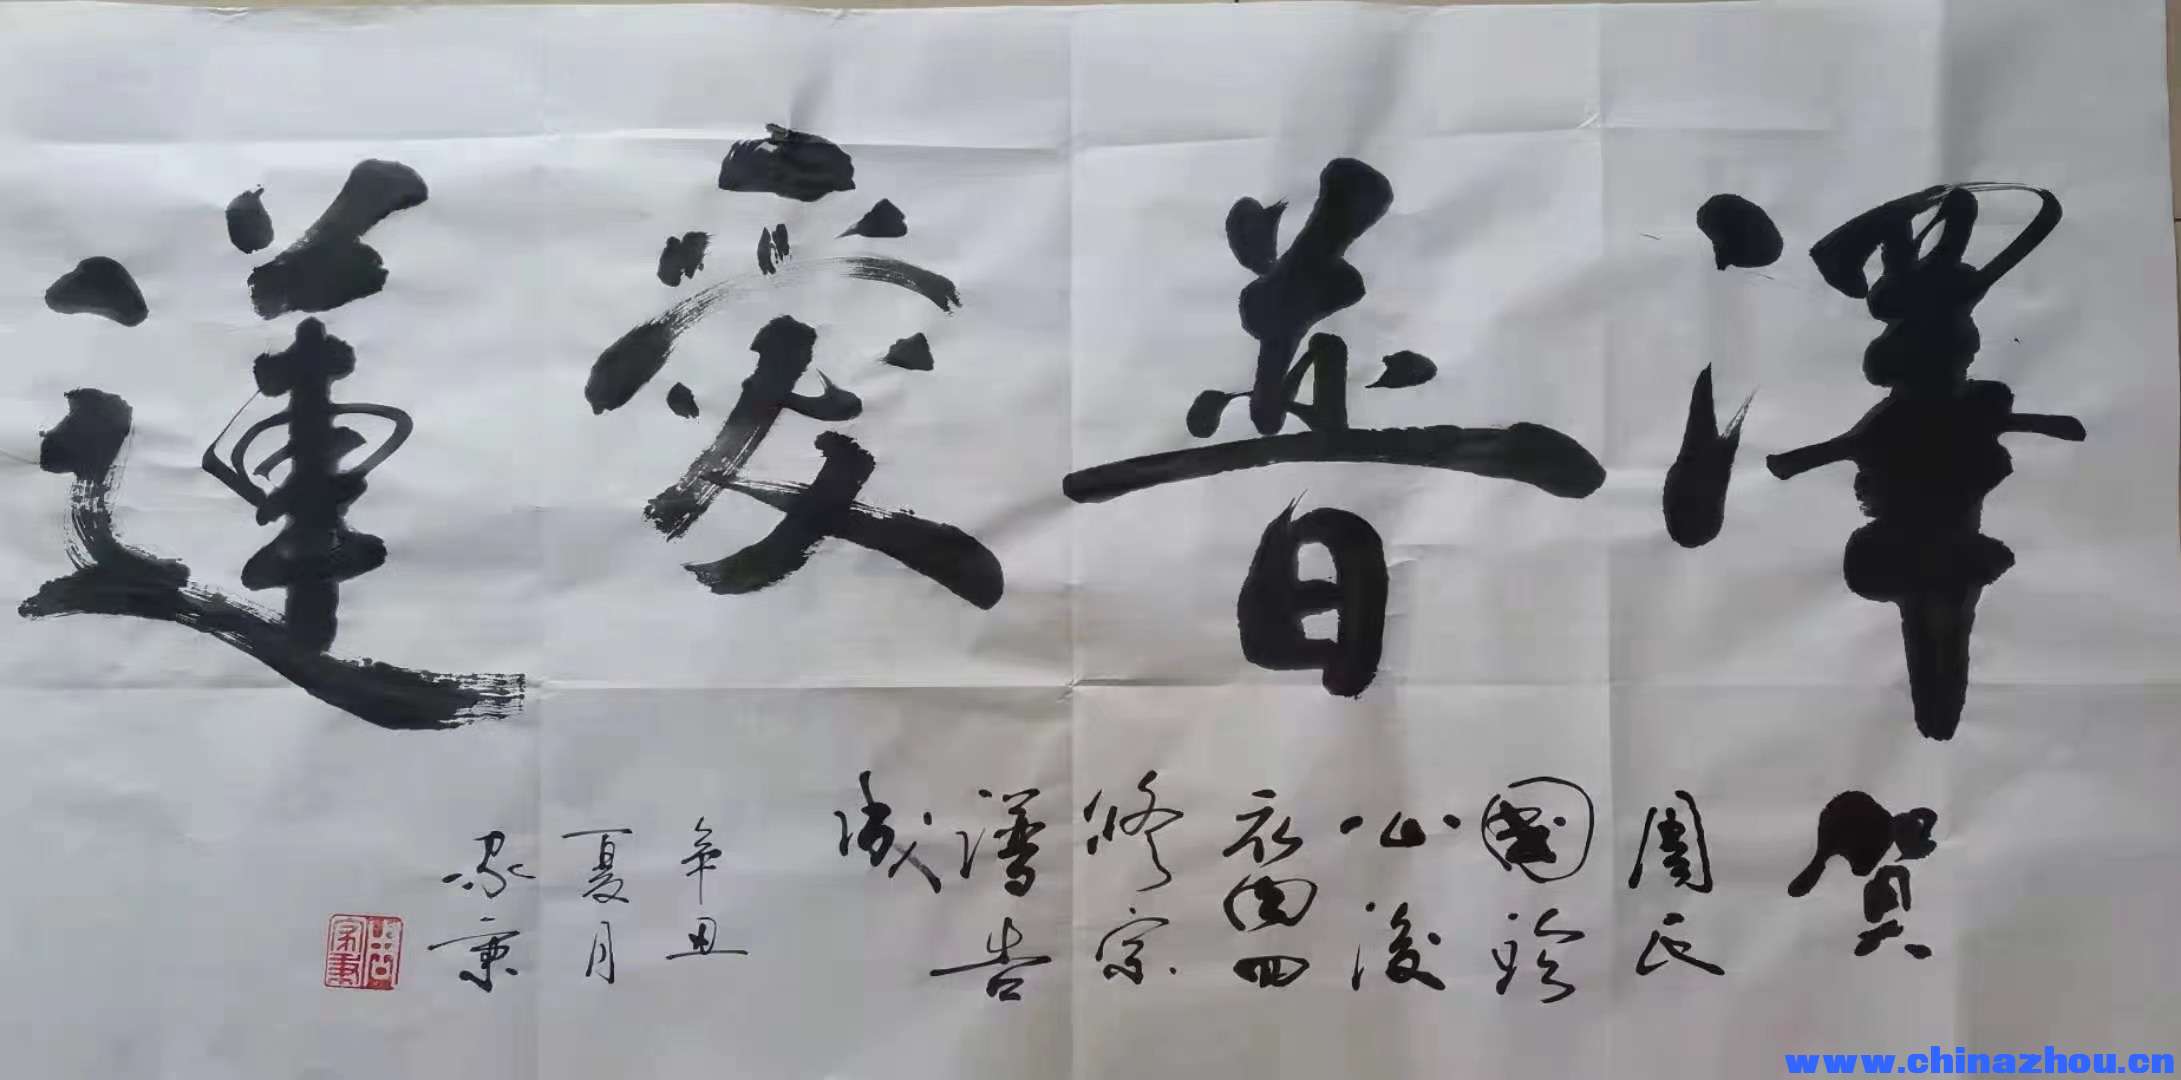 澤普愛蓮
賀
周氏
國珍
公後
裔四
修宗
譜告
成
辛丑
夏月
家秉
www.chinazhou.cn